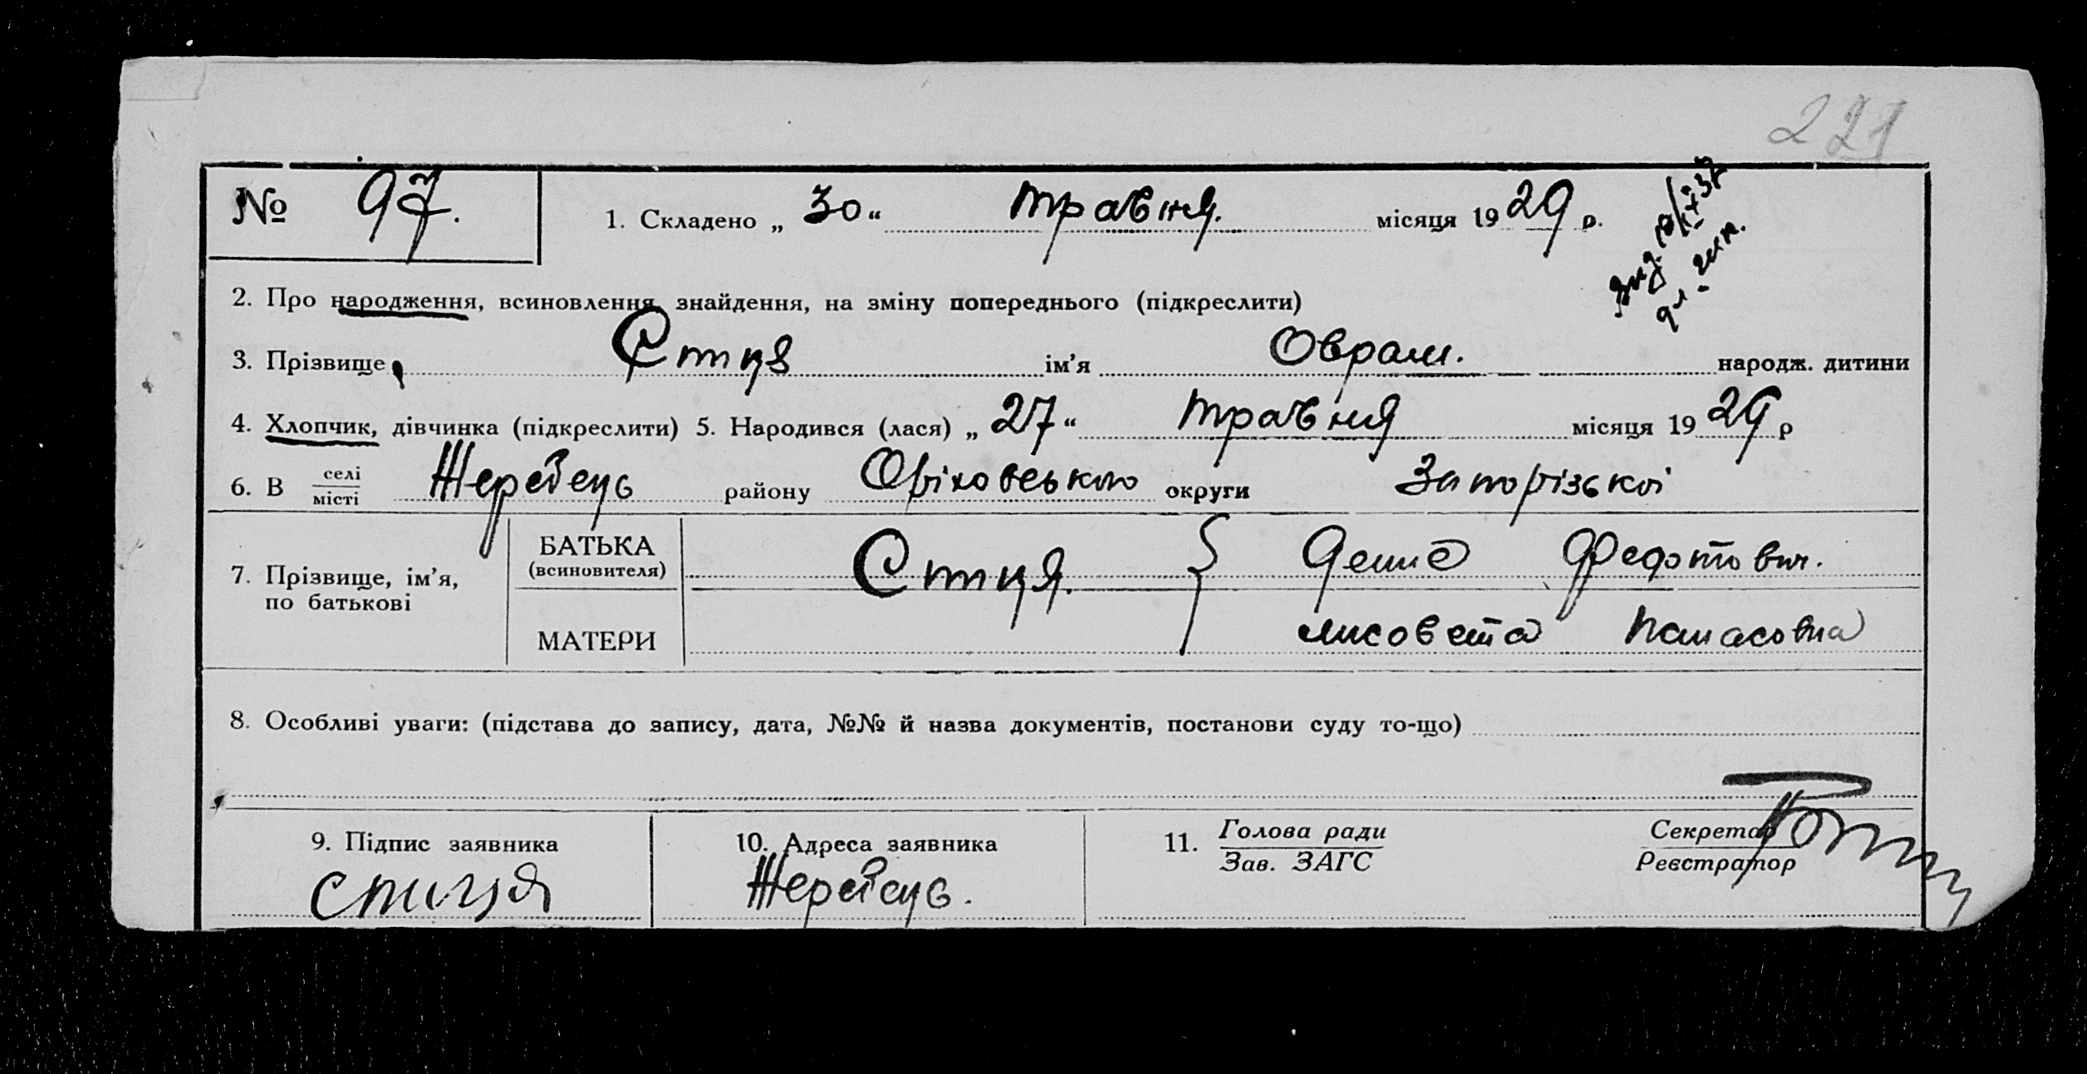 221
№ 97.
1. Складено „ 30 “ травня. місяця 1929 р.
2. Про народження, всиновлення, знайдення, на зміну попереднього (підкреслити)
3. Прізвище Стця ім’я Оврам. народж. дитини
4. Хлопчик, дівчинка (підкреслити) 5. Народився (лася) „ 27 “ травня місяця 1929 р
6. В селі/місті Жеребець району Оріховського округи Запорізькі
7. Прізвище, ім’я, по батькові
БАТЬКА (всиновителя) Стця. Демид Федотович.
МАТЕРИ лисовета Панасовна
8. Особливі уваги: (підстава до запису, дата, №№ й назва документів, постанови суду то-що)
9. Підпис заявника
стиця
10. Адреса заявника
Жеребець.
11. Голова ради
Зав. ЗАГС
Секретар
Реєстратор